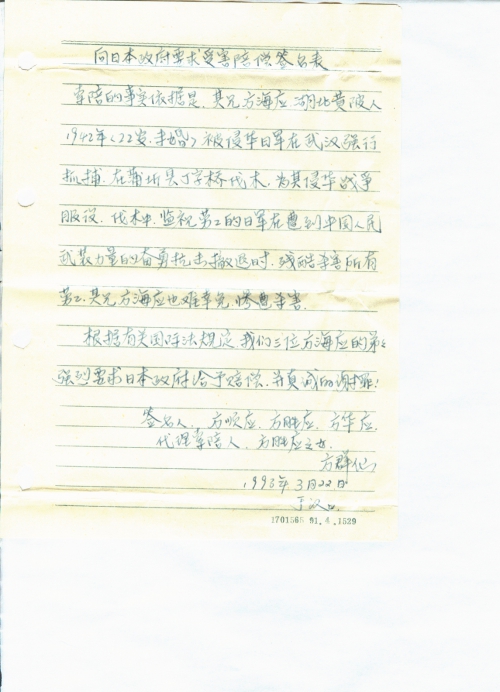 向日本政府要求受害陪偿签名表
索陪的事实依据是，其兄方海应，湖北黄陂人
1942年（22岁，未婚）被侵华日军在武汉强行
抓捕，在蒲圻县丁字桥伐木，为其侵华战争
服役。伐木中，监视劳工的日军在遭到中国人民
武装力量的奋勇抗击撤退时，残酷杀害所有
劳工，其兄方海应也难幸免，惨遭杀害。
根据有关国际法规定，我们三位方海应的弟弟
强烈要求日本政府给予赔偿，并真诚的谢罪！
签名人，方顺应，方胜应，方华应，
代理索陪人，方胜应之女
方群仙
1993年3月22日
于汉口
1701565 91.4.1529